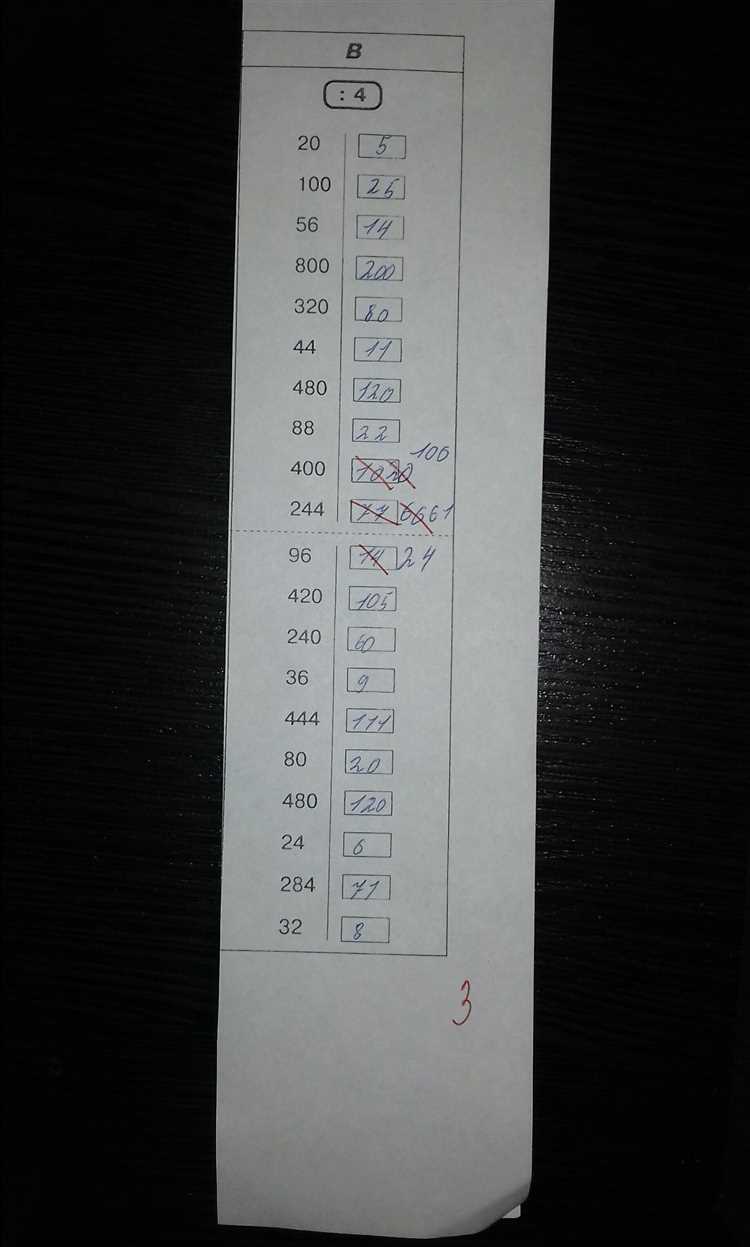 B
: 4
20 5
100 25
56 14
800 200
320 80
44 11
480 120
88 22
400 10 20 100
244 77 66 61
96 14 24
420 105
240 60
36 9
444 111
80 20
480 120
24 6
284 71
32 8
3